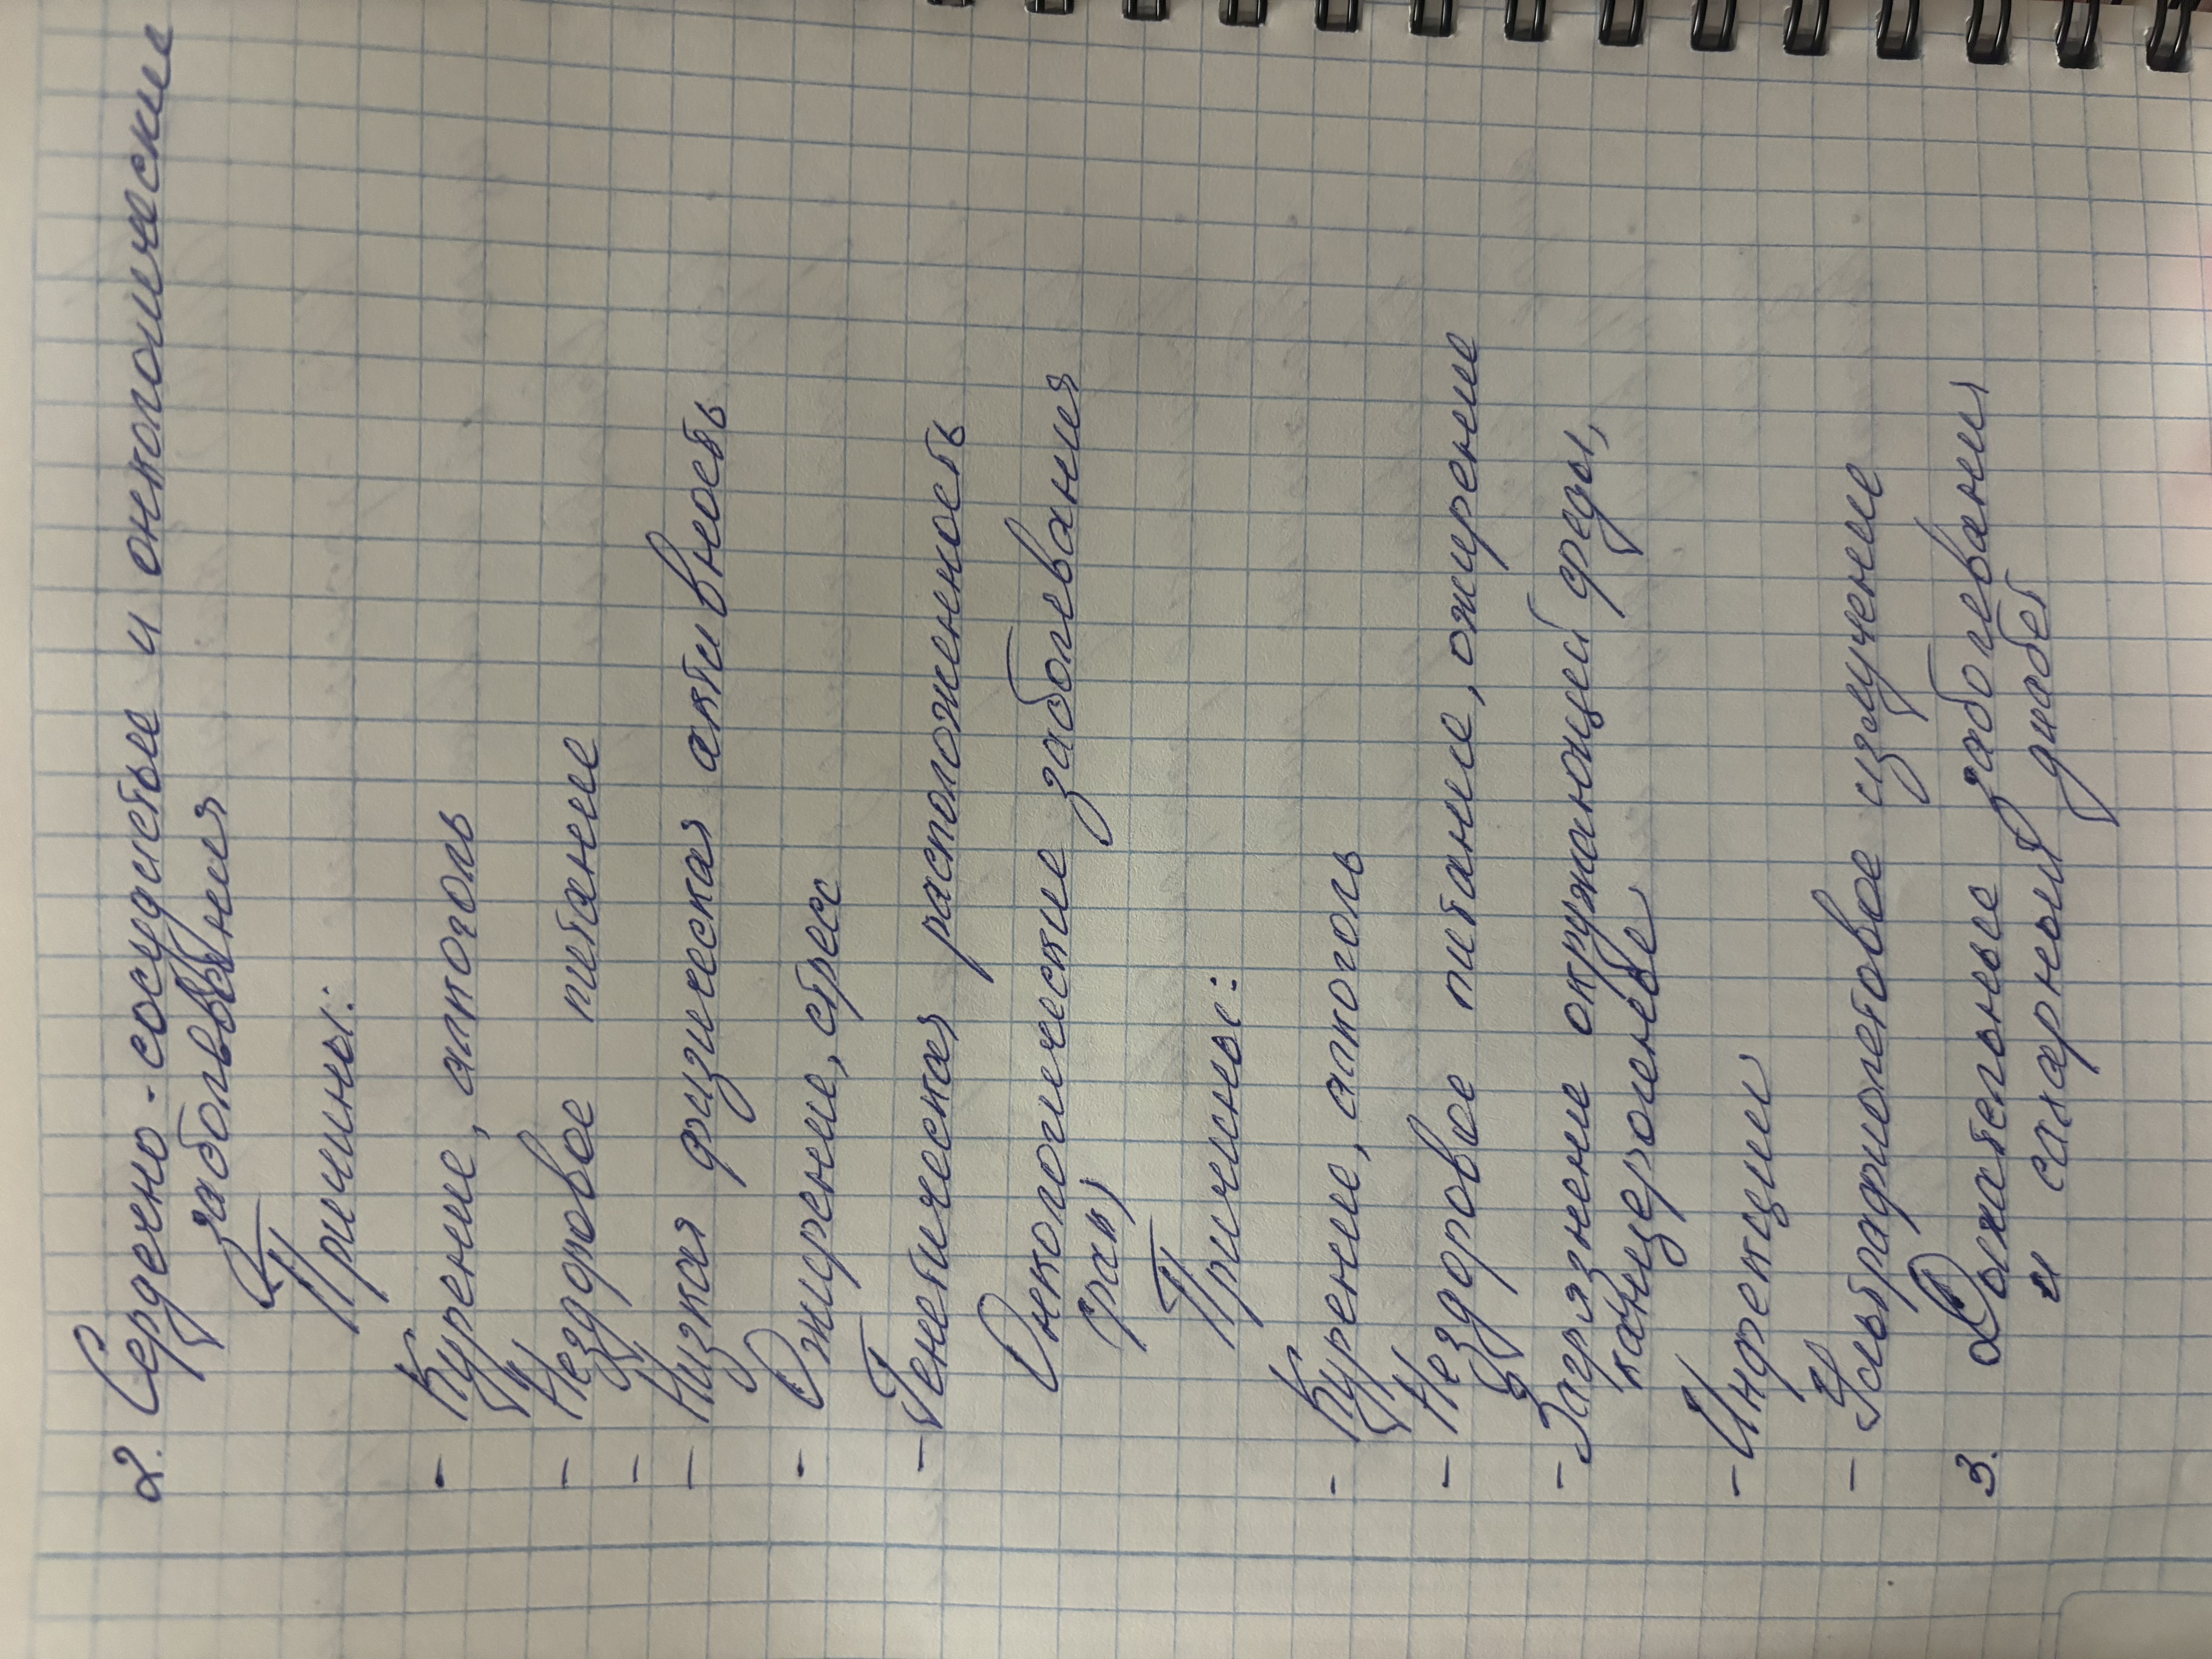 2. Сердечно-сосудистые и онкологические
заболевания
Причины:
- Курение, алкоголь
- Нездоровое питание
-
- Низкая физическая активность
- Ожирение, стресс
- Генетическая расположенность
Онкологические заболевания
(рак)
Причины:
- Курение, алкоголь
- Нездоровое питание, ожирение
- Загрязнение окружающей среды,
канцерогенные
- Инфекции
- Ультрафиолетовое излучение
3. Дыхательные заболевания
и сахарный диабет